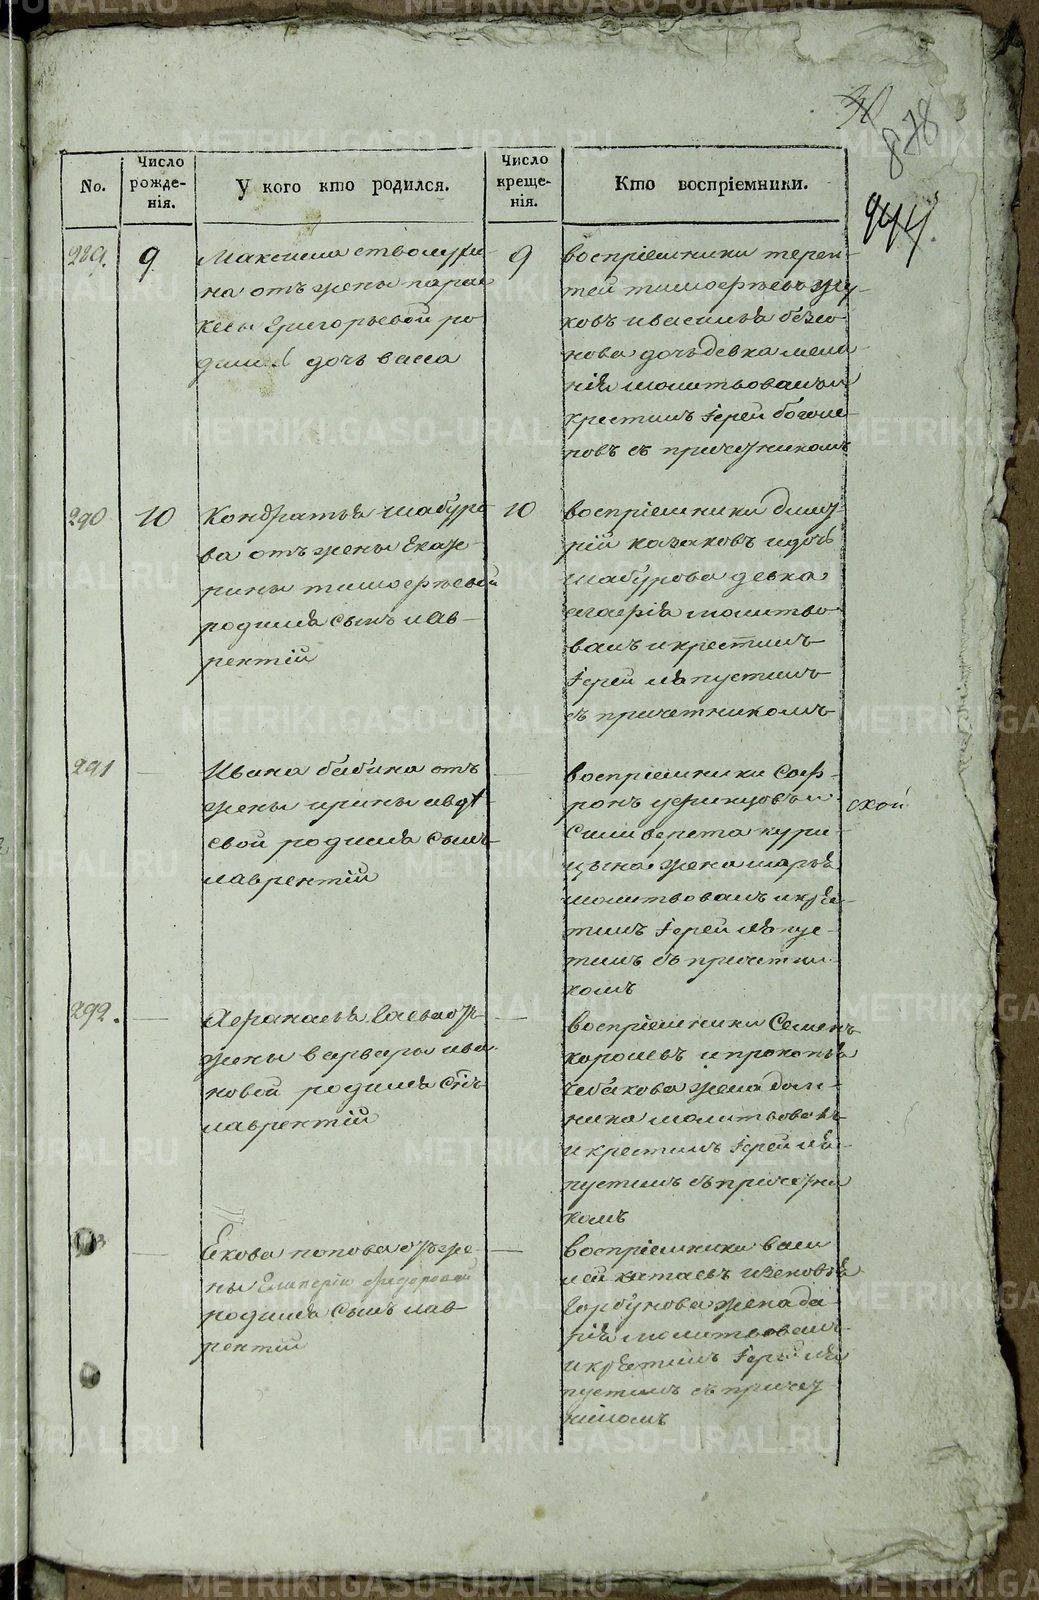 878
No.
Число рожде-нія.
У кого кто родился.
Число креще-нія.
Кто воспріемники.
289.
9
Максима
на отъ жены парас
кевы Григорьевой ро
дилась дочь васса
9
воспріемники терен-
тей тимофѣевъ жу-
ковъ и василья
нова дочь девка мела
нія молитвовалъ и
крестилъ Іерей
повъ съ причетникомъ
290
10
Кондратья шабуро
ва отъ жены Екате
рины тимофѣевой
родился сынъ лав-
рентій
10
воспріемники дмит
рій казаковъ и дочь
шабурова девка
агафія молитво
валъ и крестилъ
Іерей ляпустинъ
съ причетникомъ
291
Ивана бабина отъ
жены ирины авдѣ
евой родился сынъ
лаврентій
воспріемники Соф-
ронъ
Силиверста кури-
цына жена марья
молитвовалъ и кре-
тилъ Іерей ляпус-
тинъ съ причетни-
комъ
292.
Афанасья отъ
жены варвары ива
новой родился сынъ
лаврентій
воспріемники Семенъ
карошевъ и прокопья
чебакова жена дом-
ника молитвовалъ
и крестилъ Іерей ля-
пустинъ съ причетни
комъ
Екова попова отъ же-
ны Федоровой
родился сынъ лав-
рентій
воспріемники васи
лей китаевъ и
Горбунова жена да
рія молитвовалъ
и крестилъ Іерей ля
пустинъ съ причет
никомъ
METRIKI.GASO-URAL.RU